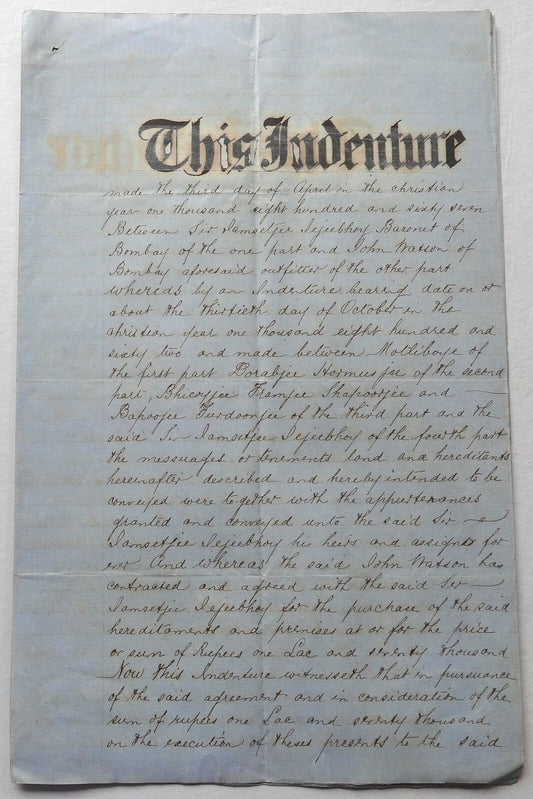 This Indenture
made the third day of April in the christian
year one thousand eight hundred and sixty seven
Between Sir Jamsetjee Jejeebhoy Baronet of
Bombay of the one part and John Watson of
Bombay aforesaid outfitter of the other part
whereas by an Indenture bearing date on or
about the thirtieth day of October in the
christian year one thousand eight hundred and
sixty two and made between Mottiboye of
the first part Dorabjee Hormusjee of the second
part, Bhicajee Framjee Shapoorjee and
Bapoojee Furdoonjee of the third part and the
said Sir Jamsetjee Jejeebhoy of the fourth part
the messuages or tenements land and hereditants
hereinafter described and hereby intended to be
conveyed were together with the appurtenances
granted and conveyed unto the said Sir —
Jamsetjee Jejeebhoy his heirs and assigns for
ever And whereas the said John Watson has
contracted and agreed with the said Sir —
Jamsetjee Jejeebhoy for the purchase of the said
hereditaments and premises at or for the price
or sum of Rupees one Lac and seventy thousand
Now this Indenture witnesseth that in pursuance
of the said agreement and in consideration of the
sum of rupees one Lac and seventy thousand
on the execution of theses presents to the said